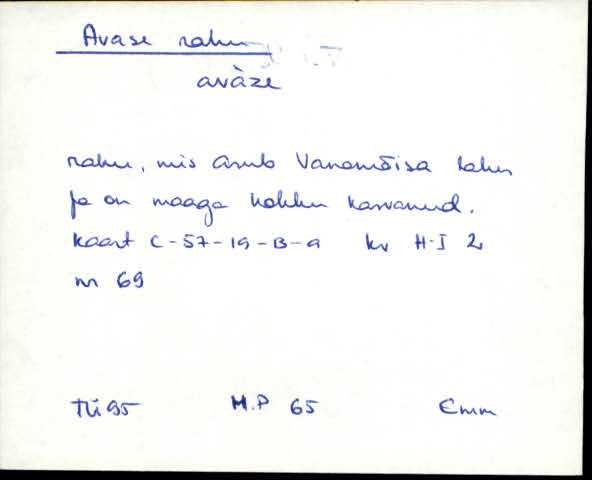 Avase rahu
avàze
rahu, mis asub Vanamõisa lahes
ja on maaga kokku kasvanud.
kaart C-57-19-B-a kv H-I 2
nr 69
TÜ 95 M.P 65 Emm